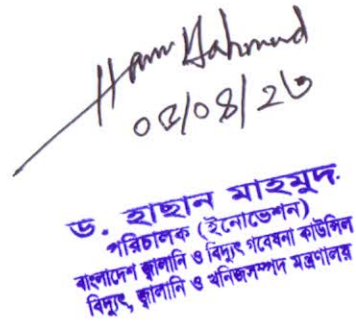 Hasan Mahmud
০৫/০৪/২৬
ড. হাছান মাহমুদ
পরিচালক (ইনোভেশন)
বাংলাদেশ জ্বালানি ও বিদ্যুৎ গবেষনা কাউন্সিল
বিদ্যুৎ, জ্বালানি ও খনিজসম্পদ মন্ত্রণালয়